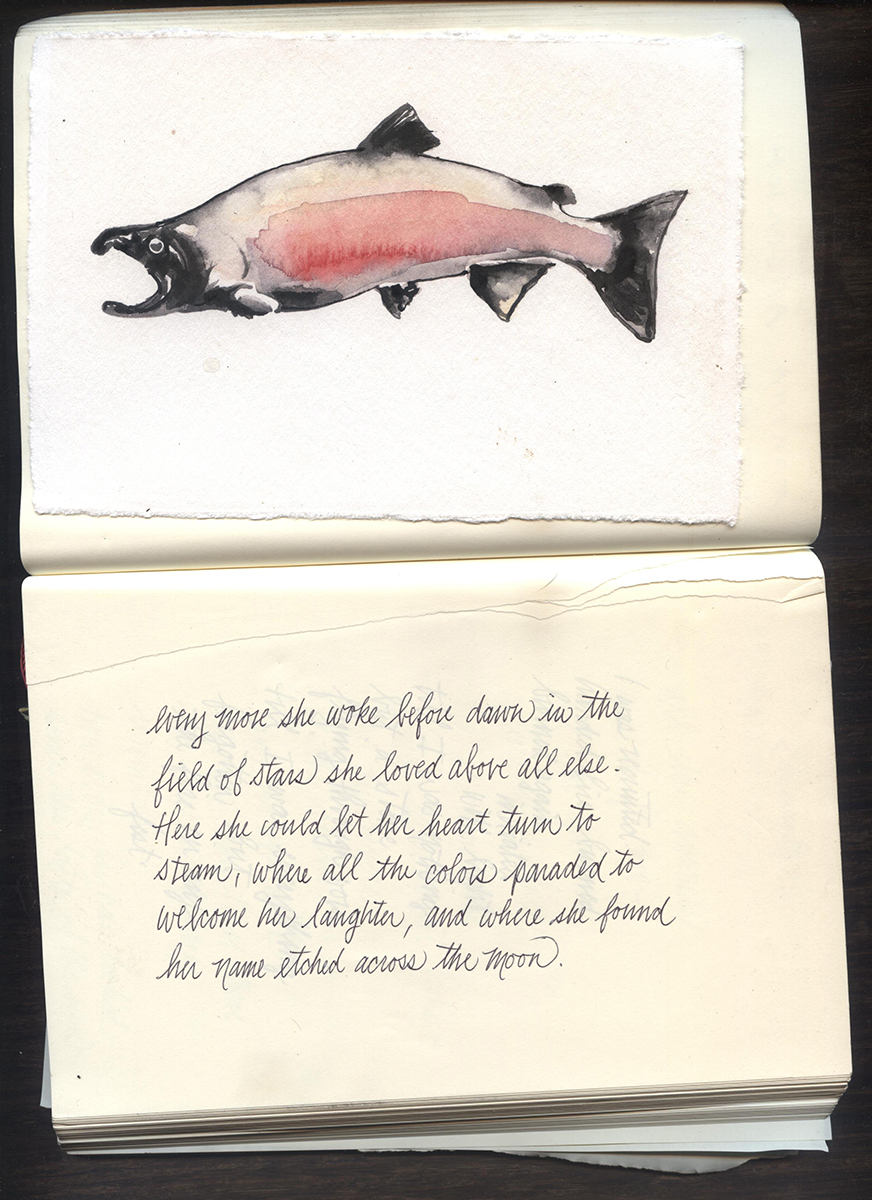 every more she woke before dawn in the
field of stars she loved above all else.
Here she could let her heart turn to
steam, where all the colors paraded to
welcome her laughter, and where she found
her name etched across the moon.